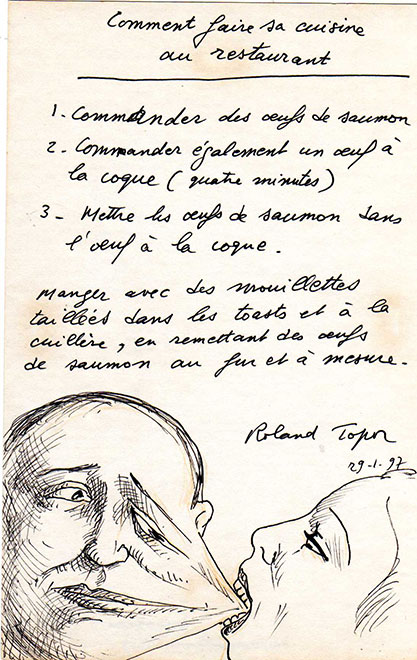 Comment faire sa cuisine
au restaurant
1. Commander des œufs de saumon
2. Commander également un œuf à
la coque (quatre minutes)
3. Mettre les œufs de saumon dans
l'œuf à la coque.
Manger avec des mouillettes
taillées dans les toasts et à la
cuillère, en remettant des œufs
de saumon au fur et à mesure.
Roland Topor
29-1-97